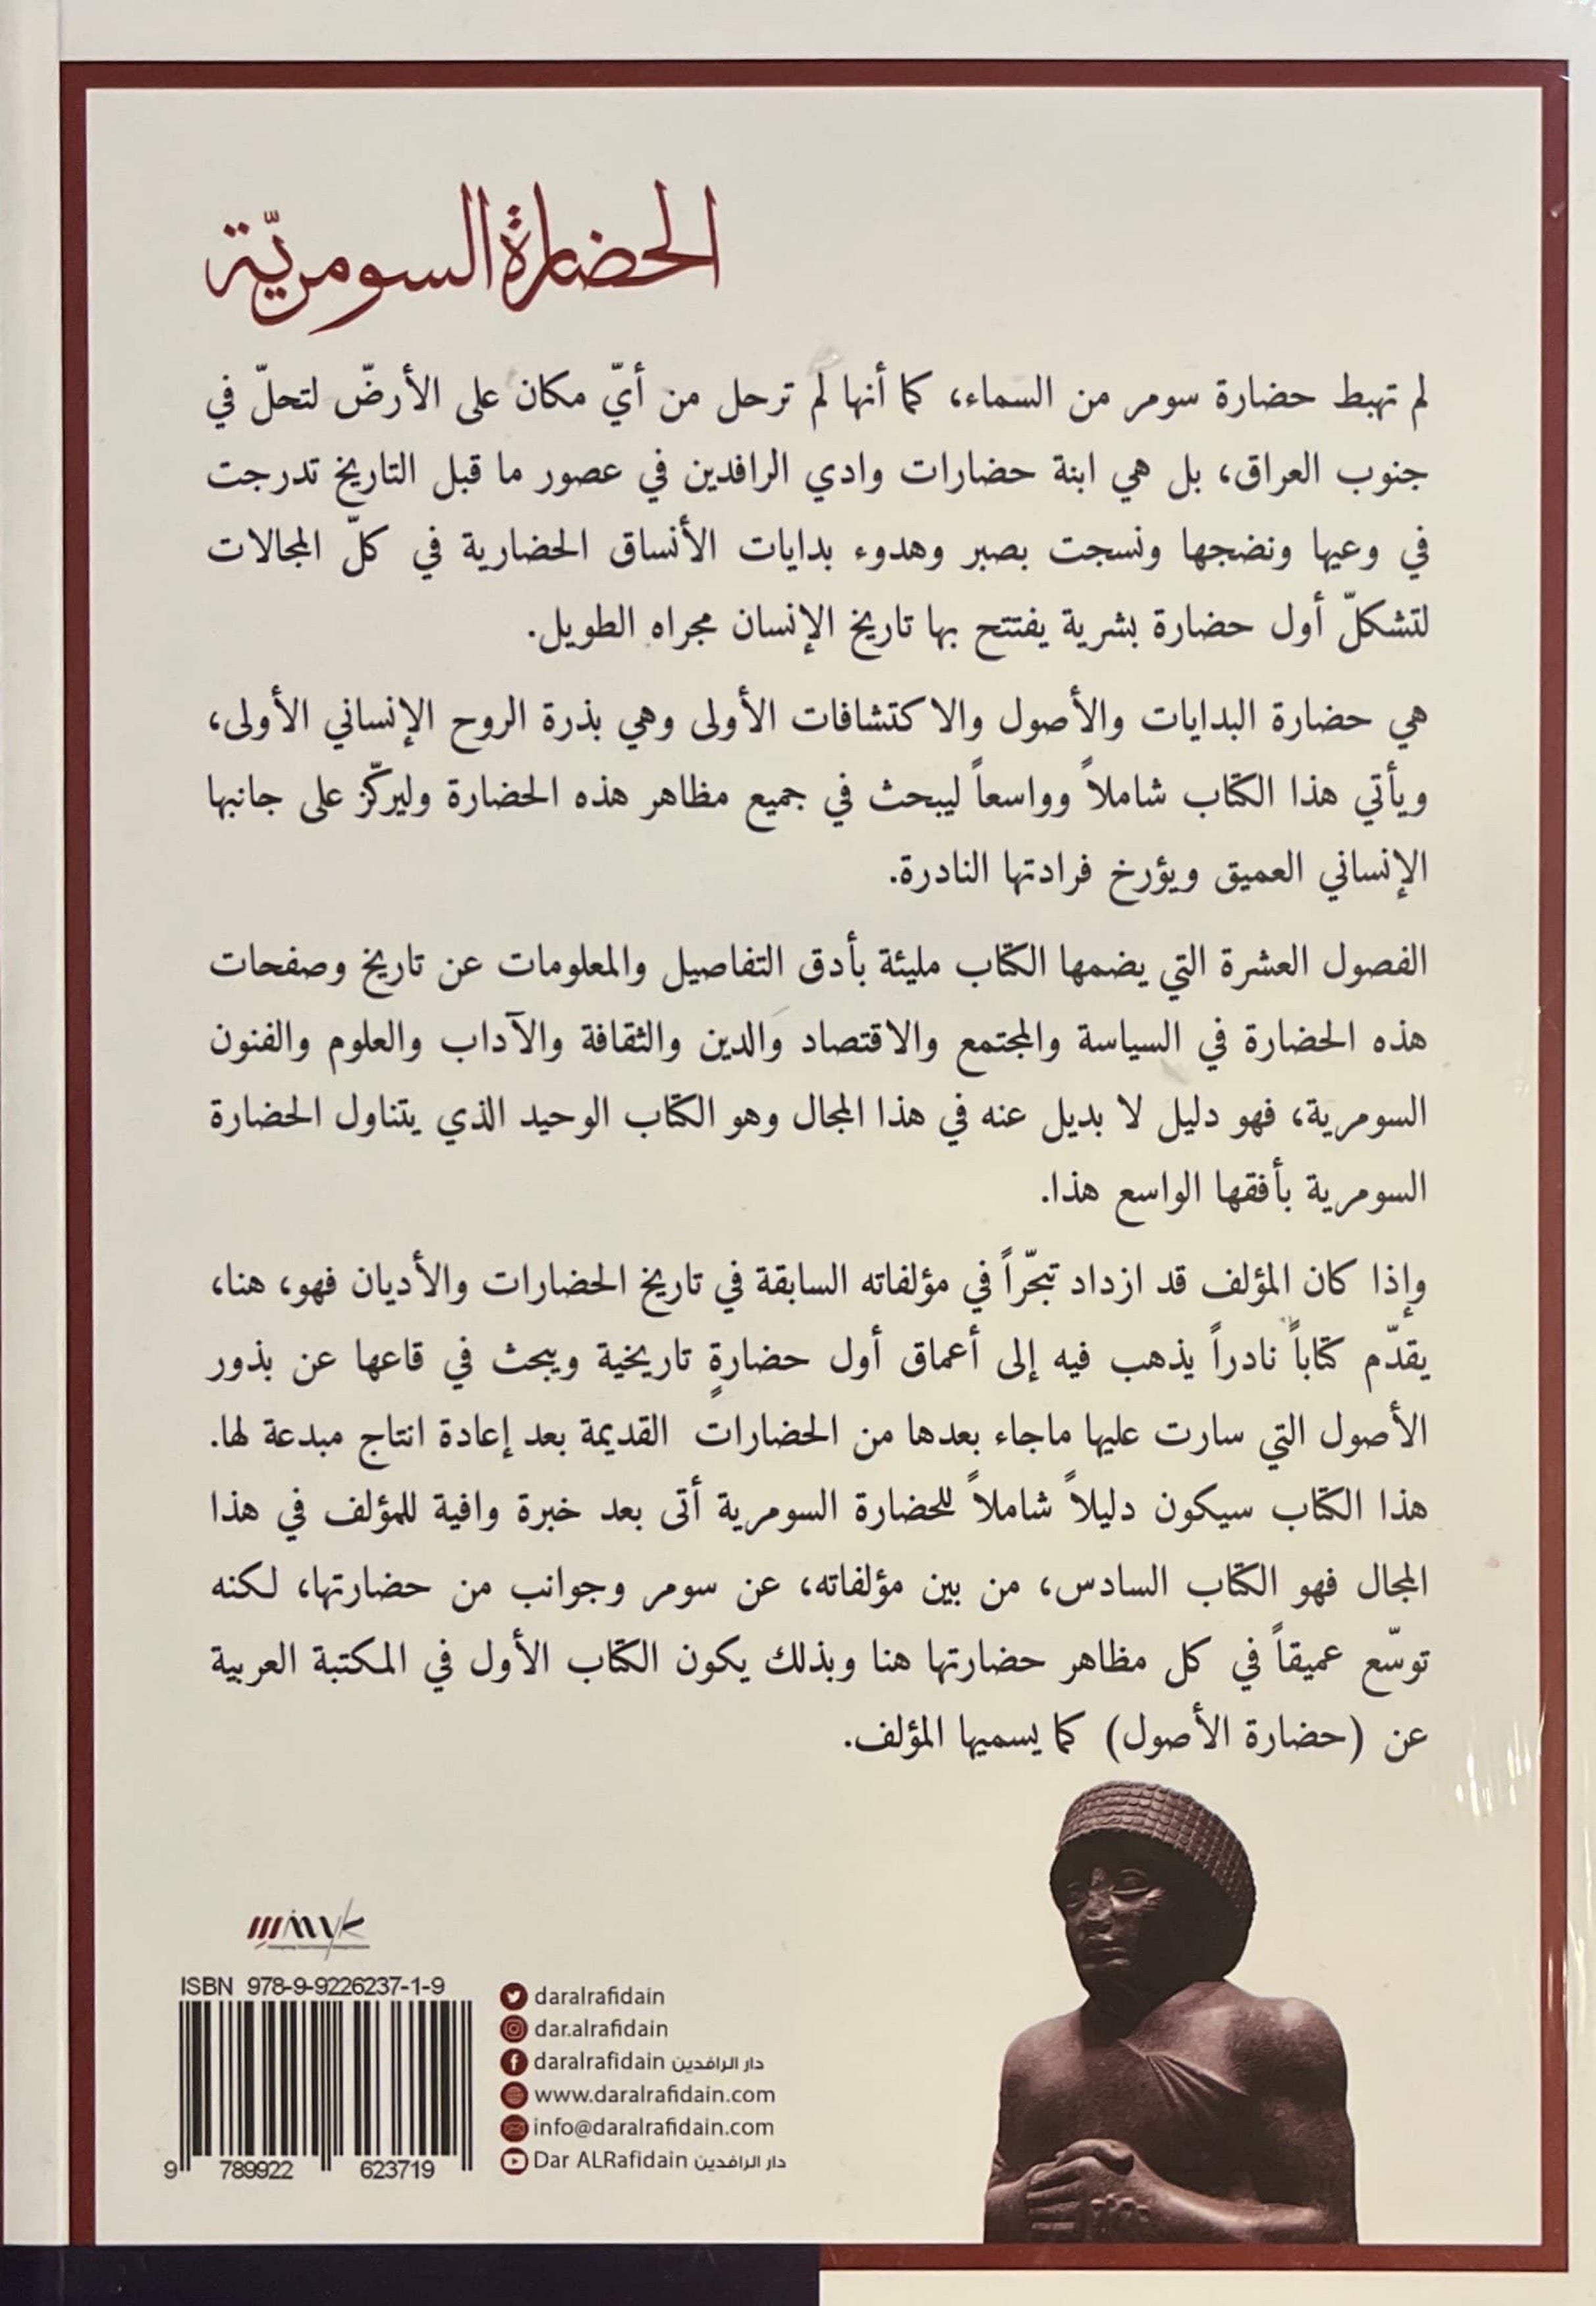 الحضارة السومريّة
لم تهبط حضارة سومر من السماء، كما أنها لم ترحل من أيّ مكان على الأرضّ لتحلّ في
جنوب العراق، بل هي ابنة حضارات وادي الرافدين في عصور ما قبل التاريخ تدرجت
في وعيها ونضجها ونسجت بصبر وهدوء بدايات الأنساق الحضارية في كلّ المجالات
لتشكلّ أول حضارة بشرية يفتتح بها تاريخ الإنسان مجراه الطويل.
هي حضارة البدايات والأصول والاكتشافات الأولى وهي بذرة الروح الإنساني الأولى،
ويأتي هذا الكتاب شاملاً وواسعاً ليبحث في جميع مظاهر هذه الحضارة وليركّز على جانبها
الإنساني العميق ويؤرخ فرادتها النادرة.
الفصول العشرة التي يضمها الكتاب مليئة بأدق التفاصيل والمعلومات عن تاريخ وصفحات
هذه الحضارة في السياسة والمجتمع والاقتصاد والدين والثقافة والآداب والعلوم والفنون
السومرية، فهو دليل لا بديل عنه في هذا المجال وهو الكتاب الوحيد الذي يتناول الحضارة
السومرية بأفقها الواسع هذا.
وإذا كان المؤلف قد ازداد تبحّراً في مؤلفاته السابقة في تاريخ الحضارات والأديان فهو، هنا،
يقدّم كتاباً نادراً يذهب فيه إلى أعماق أول حضارةٍ تاريخية ويبحث في قاعها عن بذور
الأصول التي سارت عليها ماجاء بعدها من الحضارات القديمة بعد إعادة انتاج مبدعة لها.
هذا الكتاب سيكون دليلاً شاملاً للحضارة السومرية أتى بعد خبرة وافية للمؤلف في هذا
المجال فهو الكتاب السادس، من بين مؤلفاته، عن سومر وجوانب من حضارتها، لكنه
توسّع عميقاً في كل مظاهر حضارتها هنا وبذلك يكون الكتاب الأول في المكتبة العربية
عن (حضارة الأصول) كما يسميها المؤلف.
ISBN 978-9-9226237-1-9
9 789922 623719
daralrafidain
dar.alrafidain
daralrafidain دار الرافدين
www.daralrafidain.com
info@daralrafidain.com
Dar ALRafidain دار الرافدين